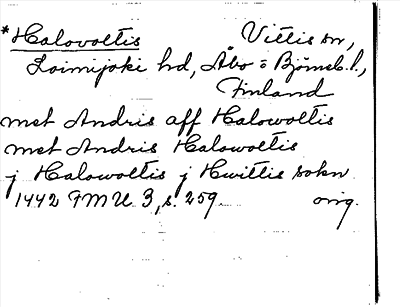 *Halowoltis Vittis sn,
Loimijoki hd, Åbo o Björneb. l.,
Finland
met Andris aff Halowoltis
met Andris Halowoltis
j Halowoltis j Hwittis sokn
1442 FMU 3, s. 259. orig.